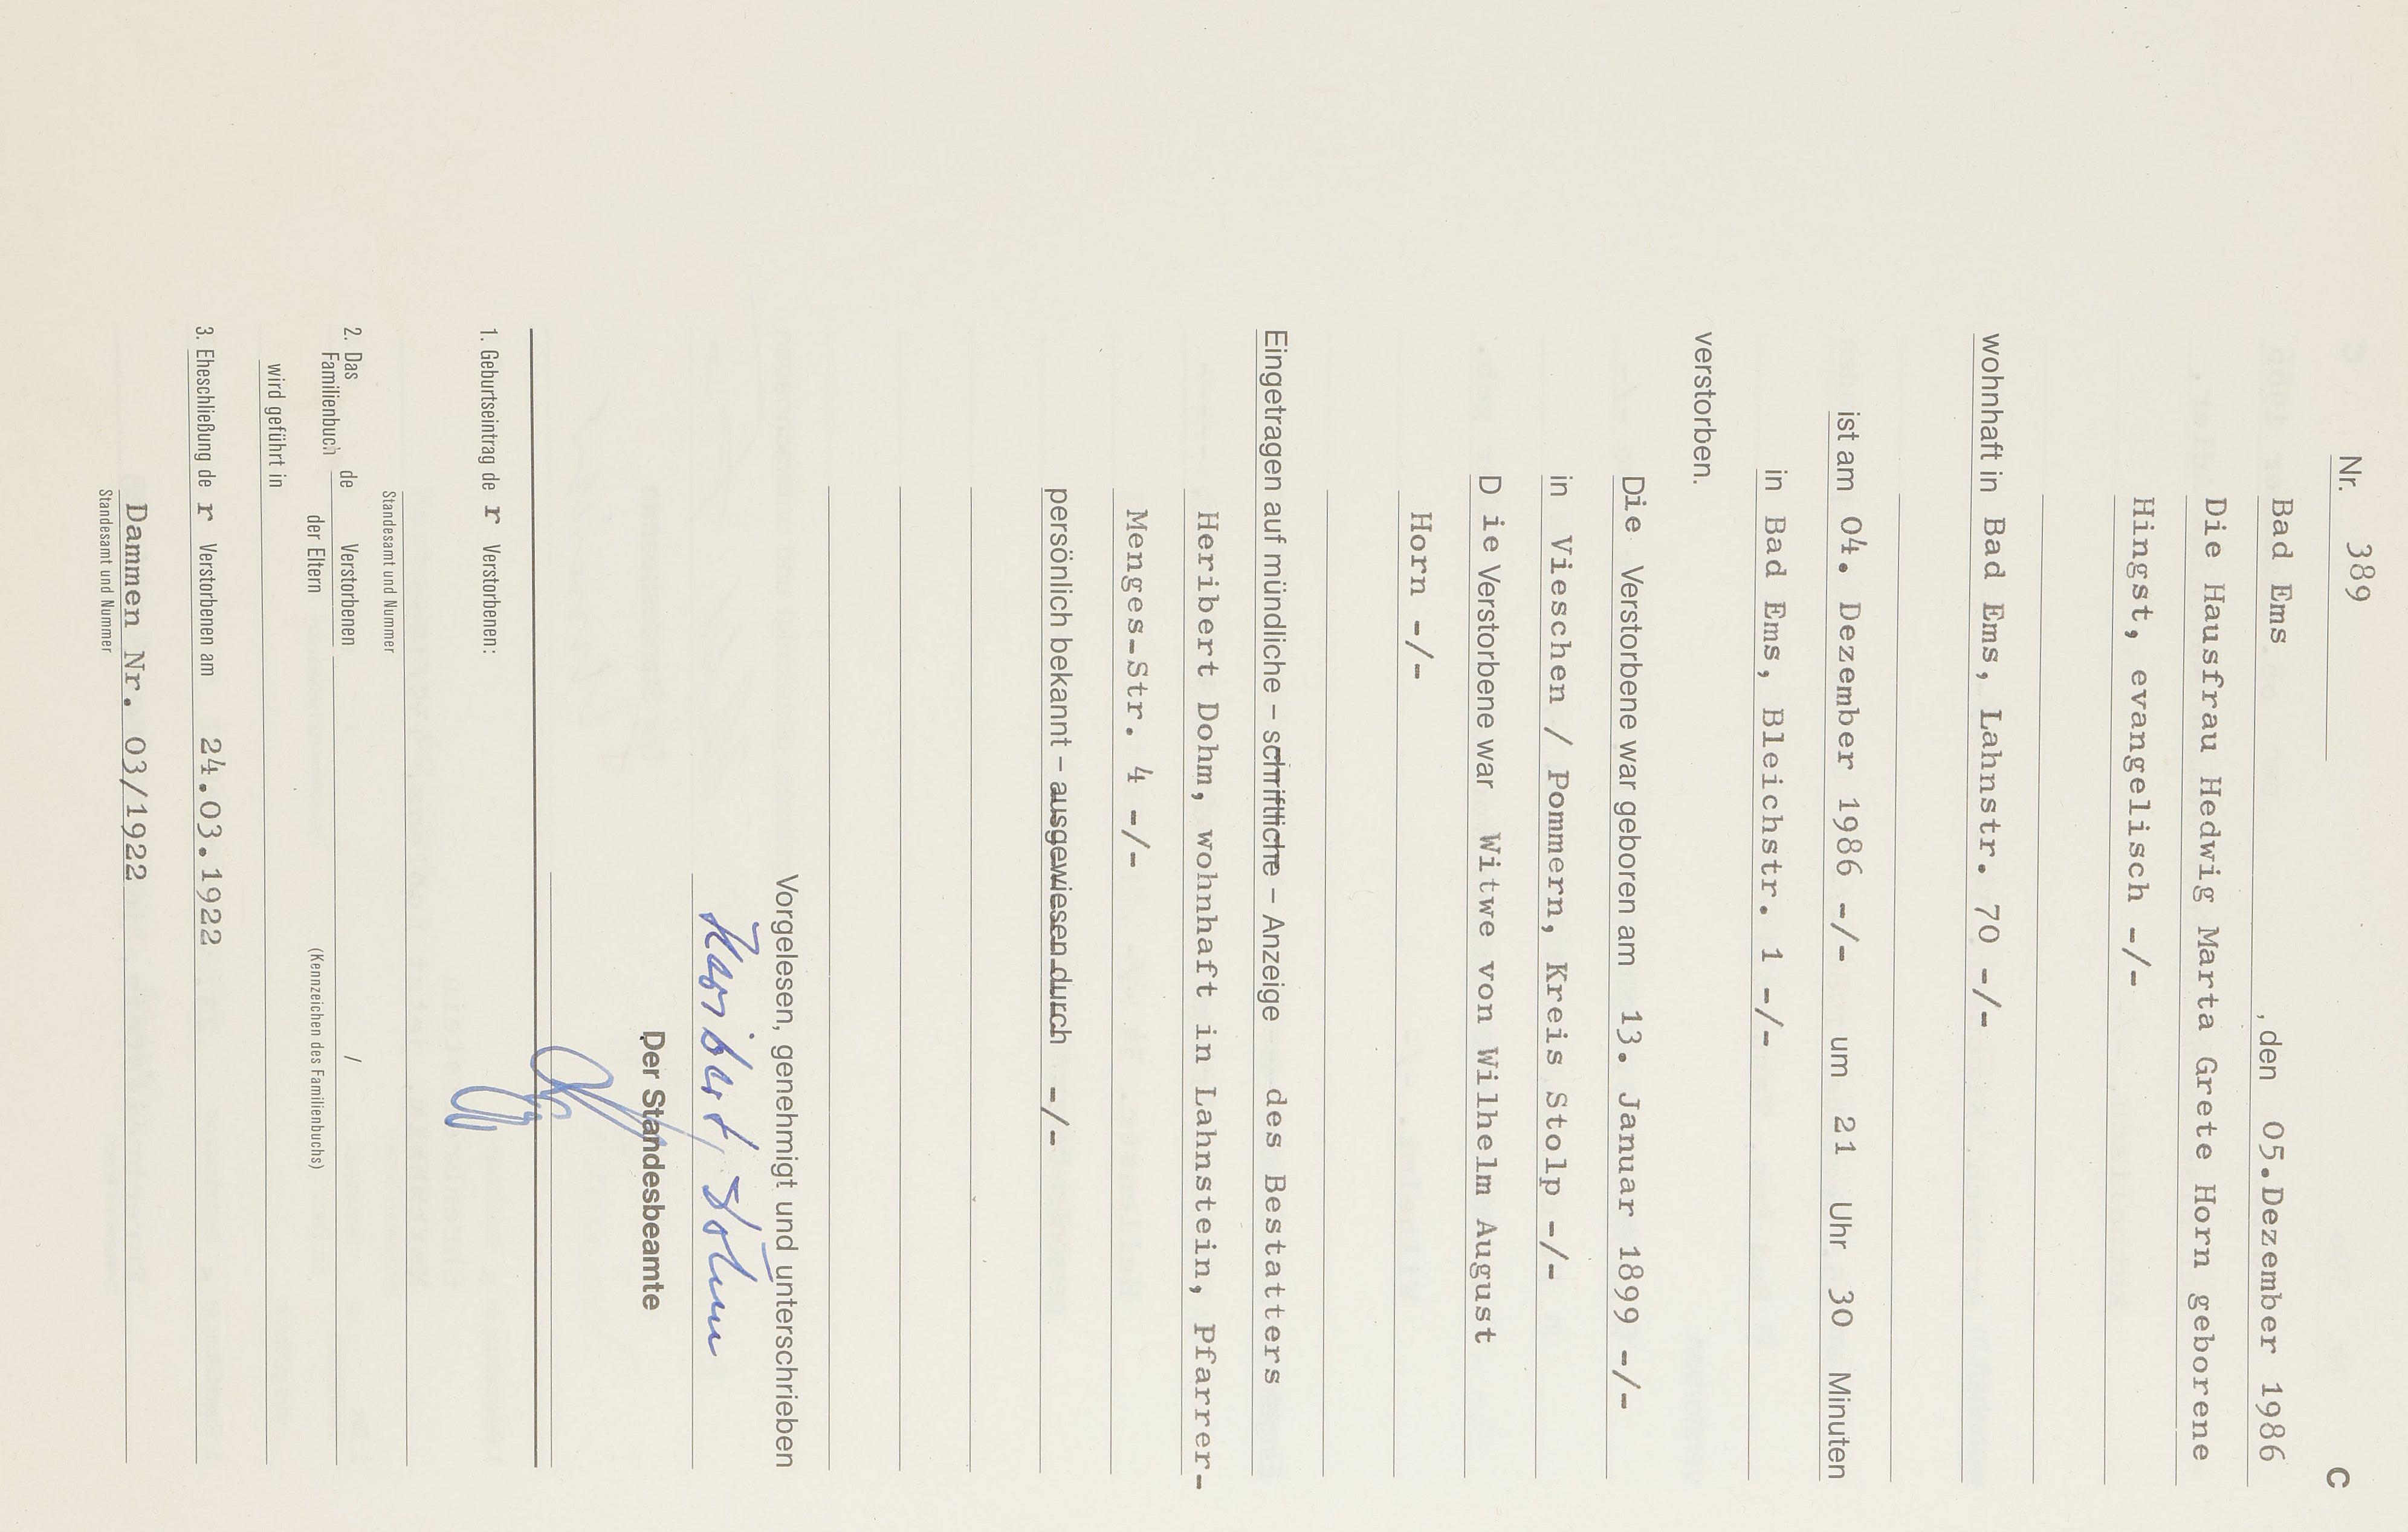 Nr. 389
C
Bad Ems , den 05.Dezember 1986
Die Hausfrau Hedwig Marta Grete Horn geborene
Hingst, evangelisch -/-
wohnhaft in Bad Ems, Lahnstr. 70 -/-
ist am 04. Dezember 1986 -/- um 21 Uhr 30 Minuten
in Bad Ems, Bleichstr. 1 -/-
verstorben.
Die Verstorbene war geboren am 13. Januar 1899 -/-
in Vieschen / Pommern, Kreis Stolp -/-
D ie Verstorbene war Witwe von Wilhelm August
Horn -/-
Eingetragen auf mündliche – schriftliche – Anzeige des Bestatters
Heribert Dohm, wohnhaft in Lahnstein, Pfarrer-
Menges-Str. 4 -/-
persönlich bekannt – ausgewiesen durch -/-
Vorgelesen, genehmigt und unterschrieben
Heribert Dohm
Der Standesbeamte
1. Geburtseintrag de r Verstorbenen:
Standesamt und Nummer
2. Das Familienbuch de Verstorbenen /
der Eltern (Kennzeichen des Familienbuchs)
wird geführt in
3. Eheschließung de r Verstorbenen am 24.03.1922
Dammen Nr. 03/1922
Standesamt und Nummer